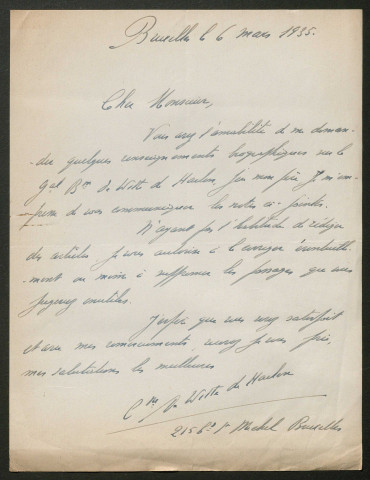 Bruxelles le 6 mars 1935.
Cher Monsieur,
Vous avez l'amabilité de me deman-
-der quelques renseignements biographiques sur le
Gal Bon de Witte de Haelen, feu mon père, je m'em-
-presse de vous communiquer les notes ci-jointes.
N'ayant pas l'habitude de rédiger
des articles je vous autorise à le corriger éventuelle-
-ment ou même à supprimer les passages que vous
jugerez inutiles.
J'espère que vous serez satisfait
et avec mes remerciements, agréez je vous prie,
mes salutations les meilleures
de Witte de Haelen
215 Bd St Michel Bruxelles